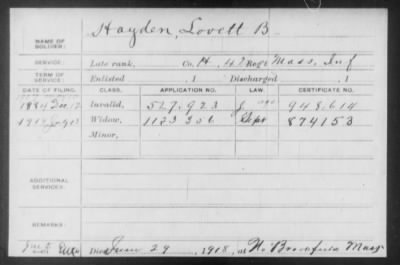 Hayden, Lovett B.
NAME OF SOLDIER:
SERVICE: Late rank, Co. H, 47 Reg't Mass. Inf
TERM OF SERVICE: Enlisted , 1 Discharged , 1
DATE OF FILING. CLASS. APPLICATION NO. LAW. CERTIFICATE NO.
1884 Dec 12 Invalid, 527.923 948.614
1918 Widow, 1123 306 874153
Minor,
ADDITIONAL SERVICES:
REMARKS:
Died June 29, 1918, at N. Brookfield Mass